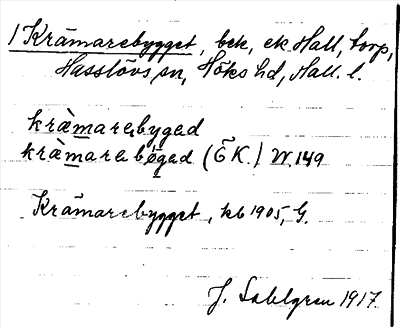 1 Krämarebygget, bek, ek Hall, torp,
Hasslövs sn, Höks hd, Hall. l.
kræ̀marebyged
kræ̀marebøged (E K.) W.149
Krämarebygget, kb 1905, G.
J. Sahlgren 1917.